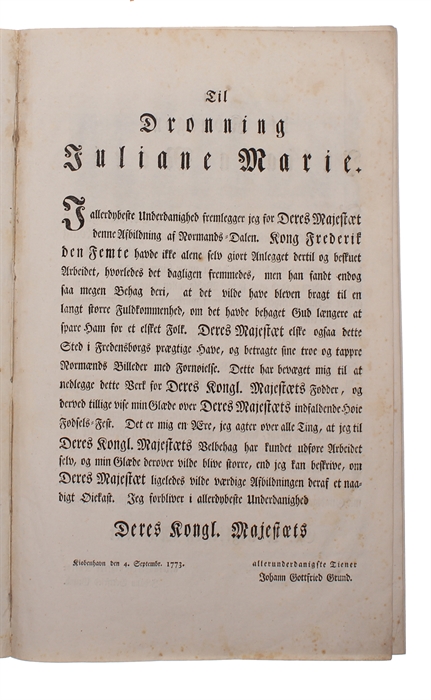 Til
Dronning
Juliane Marie.
I allerdybeste Underdanighed fremlegger jeg for Deres Majestæt
denne Afbildning af Normands-Dalen. Kong Frederik
den Femte havde ikke alene selv giort Anlegget dertil og beskuet
Arbeidet, hvorledes det dagligen fremmedes, men han fandt endog
saa megen Behag deri, at det vilde have bleven bragt til en
langt større Fuldkommenhed, om det havde behaget Gud længere at
spare Ham for et elsket Folk. Deres Majestæt elske ogsaa dette
Sted i Fredensborgs prægtige Have, og betragte sine troe og tappre
Normænds Billeder med Fornøielse. Dette har bevæget mig til at
nedlegge dette Verk for Deres Kongl. Majestæts Fødder, og
derved tillige vise min Glæde over Deres Majestæts indfaldende Høie
Fødsels-Fest. Det er mig en Ære, jeg agter over alle Ting, at jeg til
Deres Kongl. Majestæts Velbehag har kundet udføre Arbeidet
selv, og min Glæde derover vilde blive større, end jeg kan beskrive, om
Deres Majestæt ligeledes vilde værdige Afbildningen deraf et naa-
digt Øiekast. Jeg forbliver i allerdybeste Underdanighed
Deres Kongl. Majestæts
Kiøbenhavn den 4. Septembr. 1773.
allerunderdanigste Tiener
Johann Gottfried Grund.